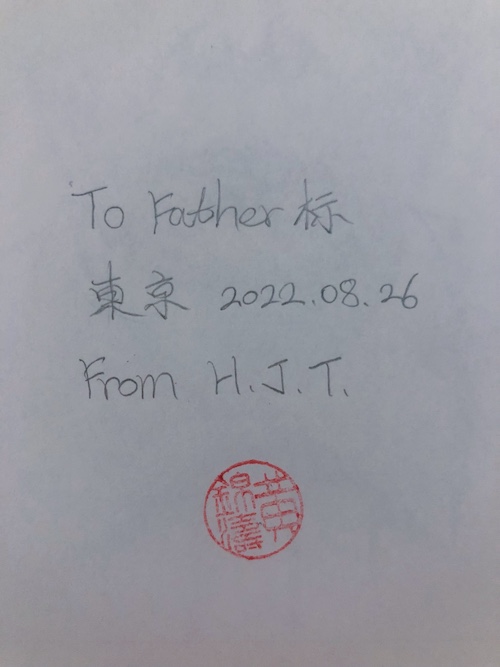 To Father 标
東京 2022.08.26
From H.J.T.
黄錦濤